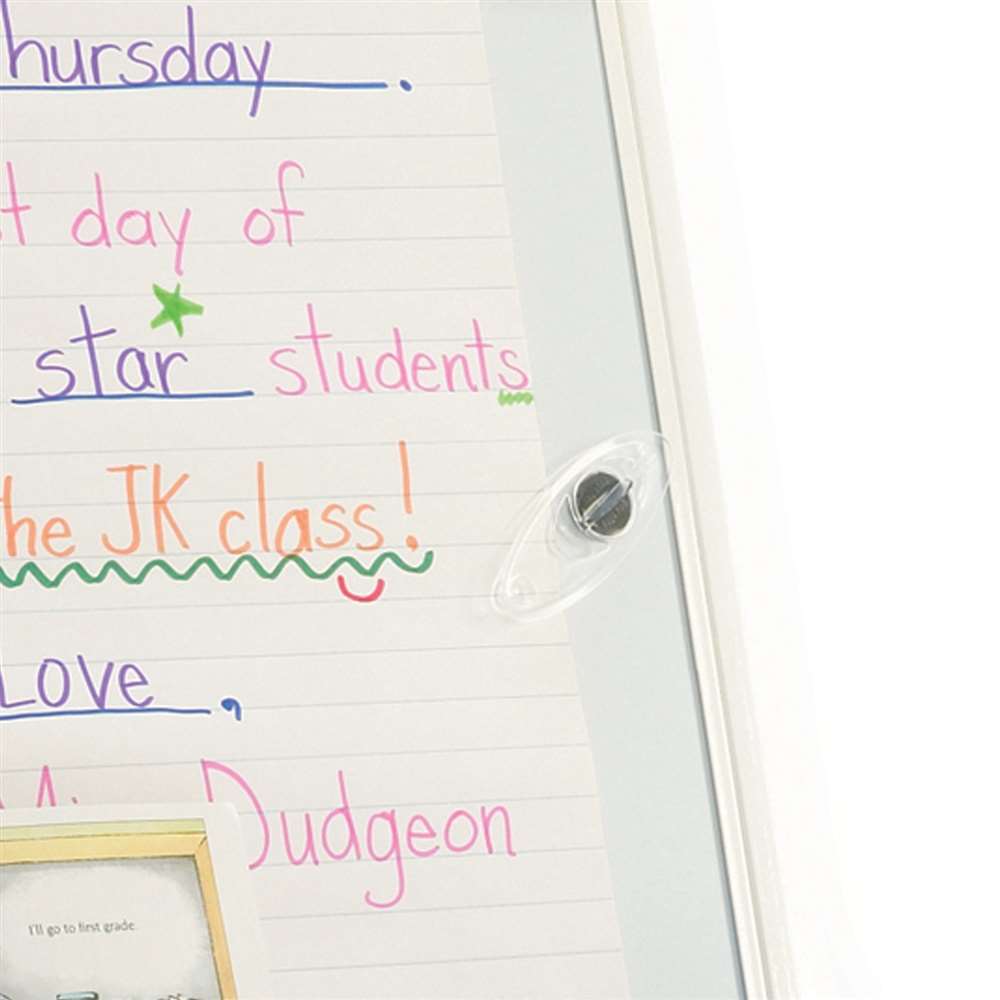 hursday .
t day of
star students
he JK class!
Love ,
Dudgeon
I'll go to first grade.